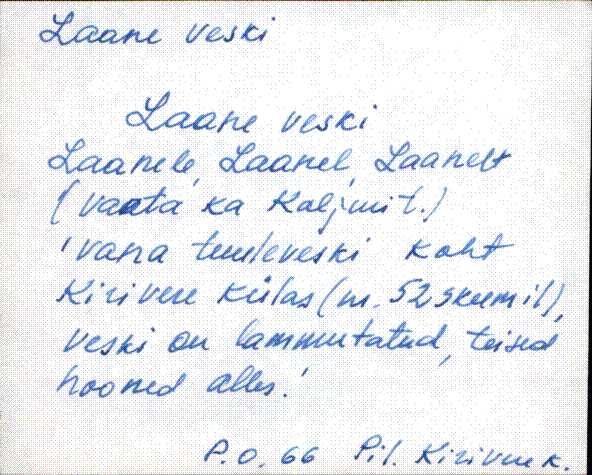 Laane veski
Laane veski
Laanele, Laanel, Laanelt
(vaata ka Kaljmit.)
'vana tuuleveski koht
Kirivere külas (nr. 52 skeemil),
veski on lammutatud, teised
hooned alles.'
P.O. 66 Pil. Kirivere k.